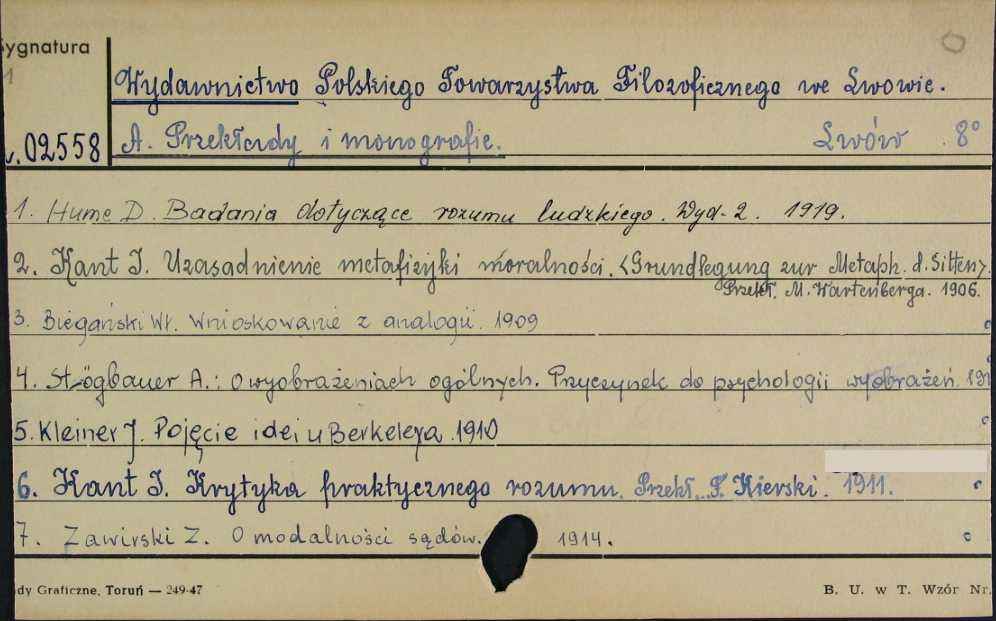 Sygnatura
Wydawnictwo Polskiego Towarzystwa Filozoficznego we Lwowie.
02558 A. Przekłady i monografie. Lwów 8°
1. Hume D. Badania dotyczące rozumu ludzkiego. Wyd. 2. 1919.
2. Kant I. Uzasadnienie metafizyki moralności. <Grundlegung zur Metaph. d. Sitten>.
Przekł. M. Wartenberga. 1906.
3. Biegański Wł. Wnioskowanie z analogii. 1909
4. Stögbauer A.: O wyobrażeniach ogólnych. Przyczynek do psychologii wyobrażeń.
5. Kleiner J. Pojęcie idei u Berkeleya. 1910
6. Kant I. Krytyka praktycznego rozumu. Przekł. F. Kierski. 1911.
7. Zawirski Z. O modalności sądów. 1914.
dy Graficzne, Toruń — 249-47 B. U. w T. Wzór Nr.